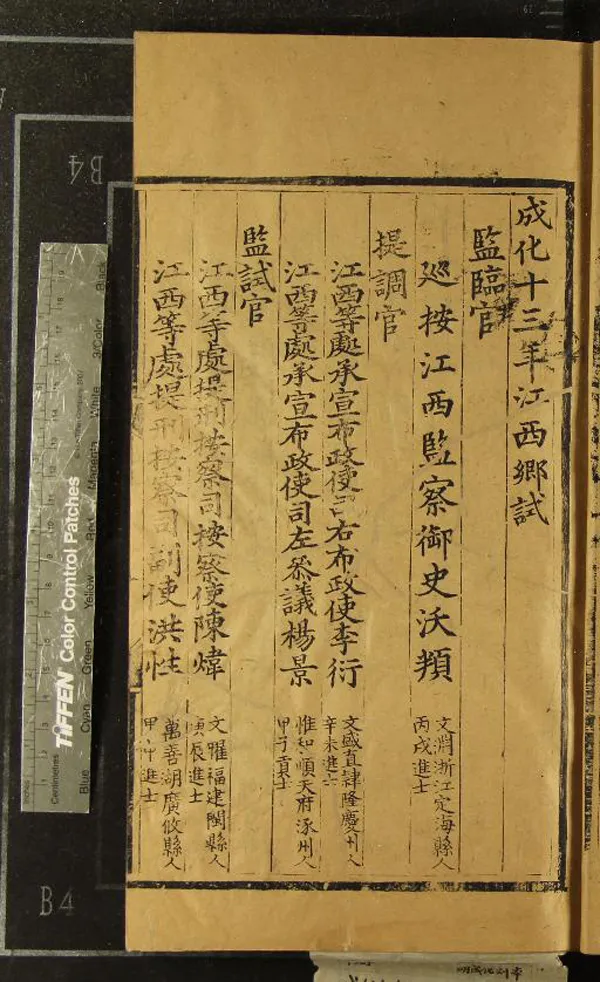 成化十三年江西鄉試
監臨官
廵按江西監察御史沃頖
文淵浙江定海縣人
丙戌進士
提調官
江西等處承宣布政使司右布政使李衍
文盛直隸隆慶州人
辛未進士
江西等處承宣布政使司左叅議楊景
惟和順天府涿州人
甲子貢士
監試官
江西等處提刑按察司按察使陳煒
文耀福建閩縣人
庚辰進士
江西等處提刑按察司副使洪性
萬善湖廣攸縣人
甲戌進士
TIFFEN Color Control Patches
Centimetres
Blue
Cyan
Green
Yellow
Red
Magenta
White
3/Color
Black
B4
B4